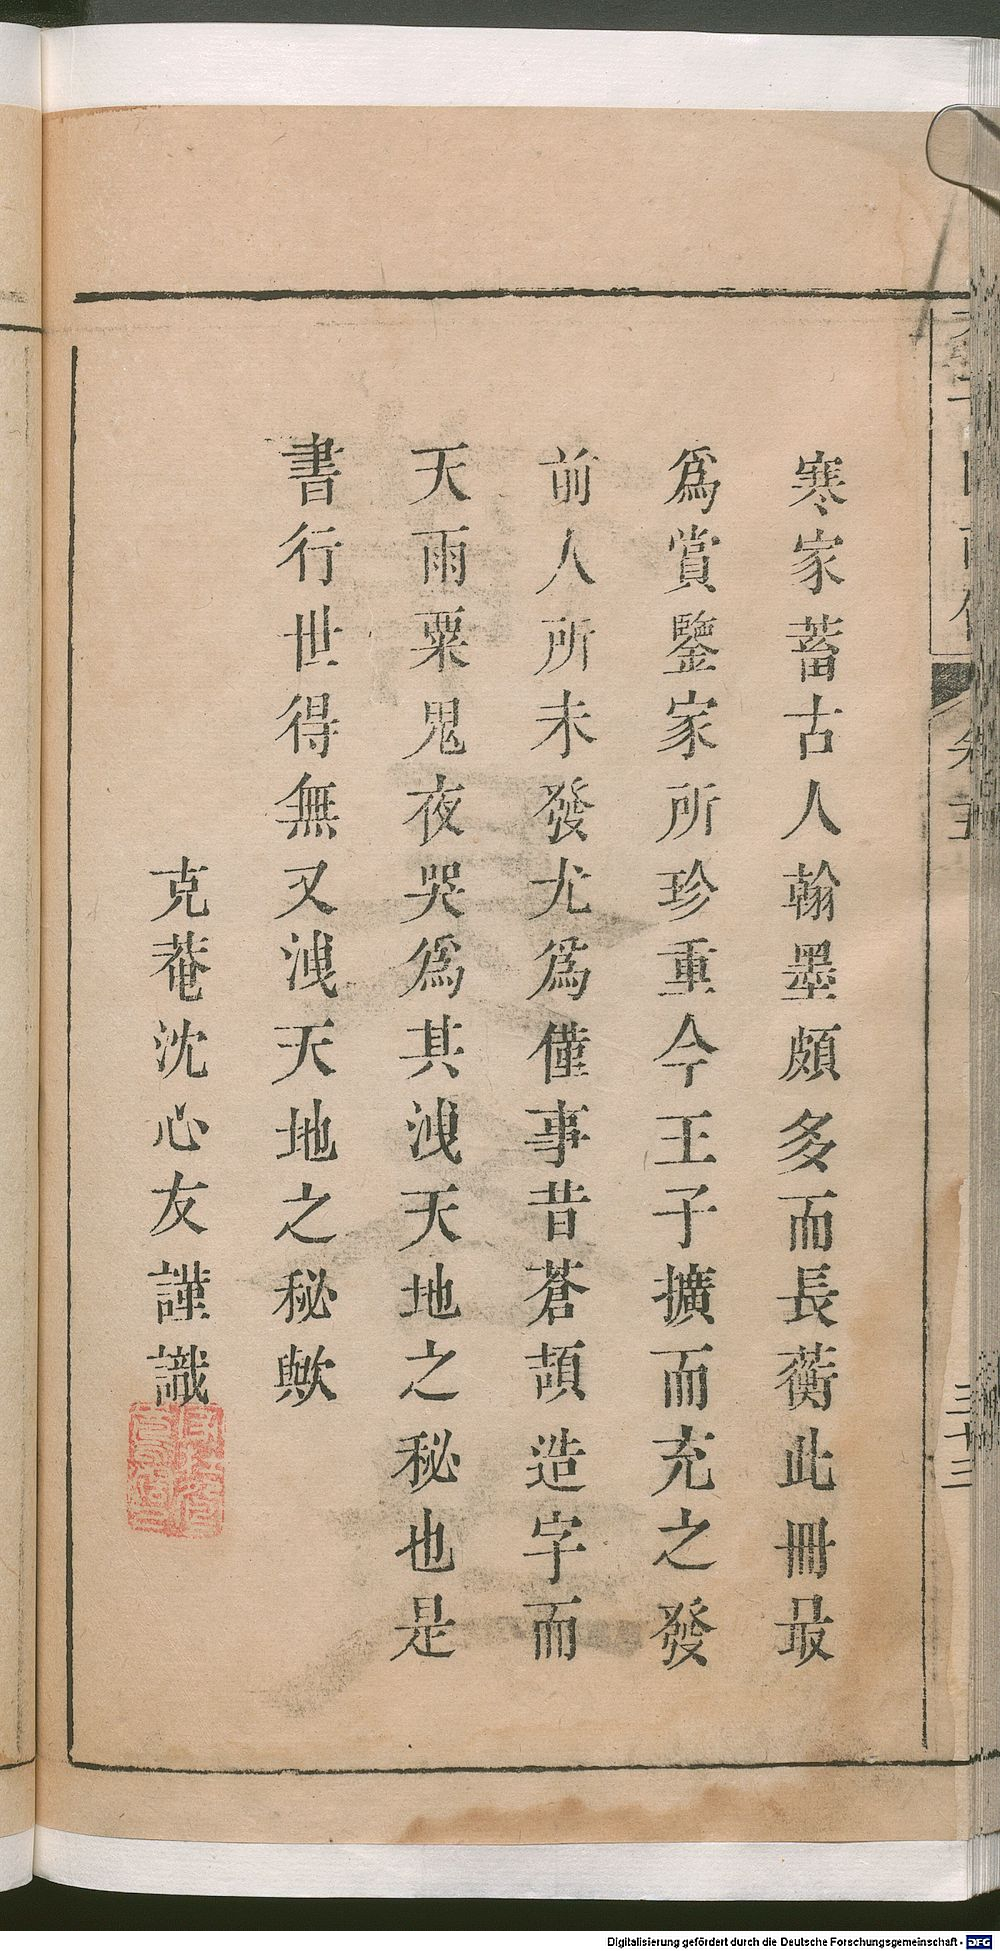 寒家蓄古人翰墨頗多而長蘅此冊最
爲賞鑒家所珍重今王子擴而充之發
前人所未發尤爲僅事昔蒼頡造字而
天雨粟鬼夜哭爲其洩天地之秘也是
書行世得無又洩天地之秘歟
克菴沈心友謹識
三十三
Digitalisierung gefördert durch die Deutsche Forschungsgemeinschaft - DFG